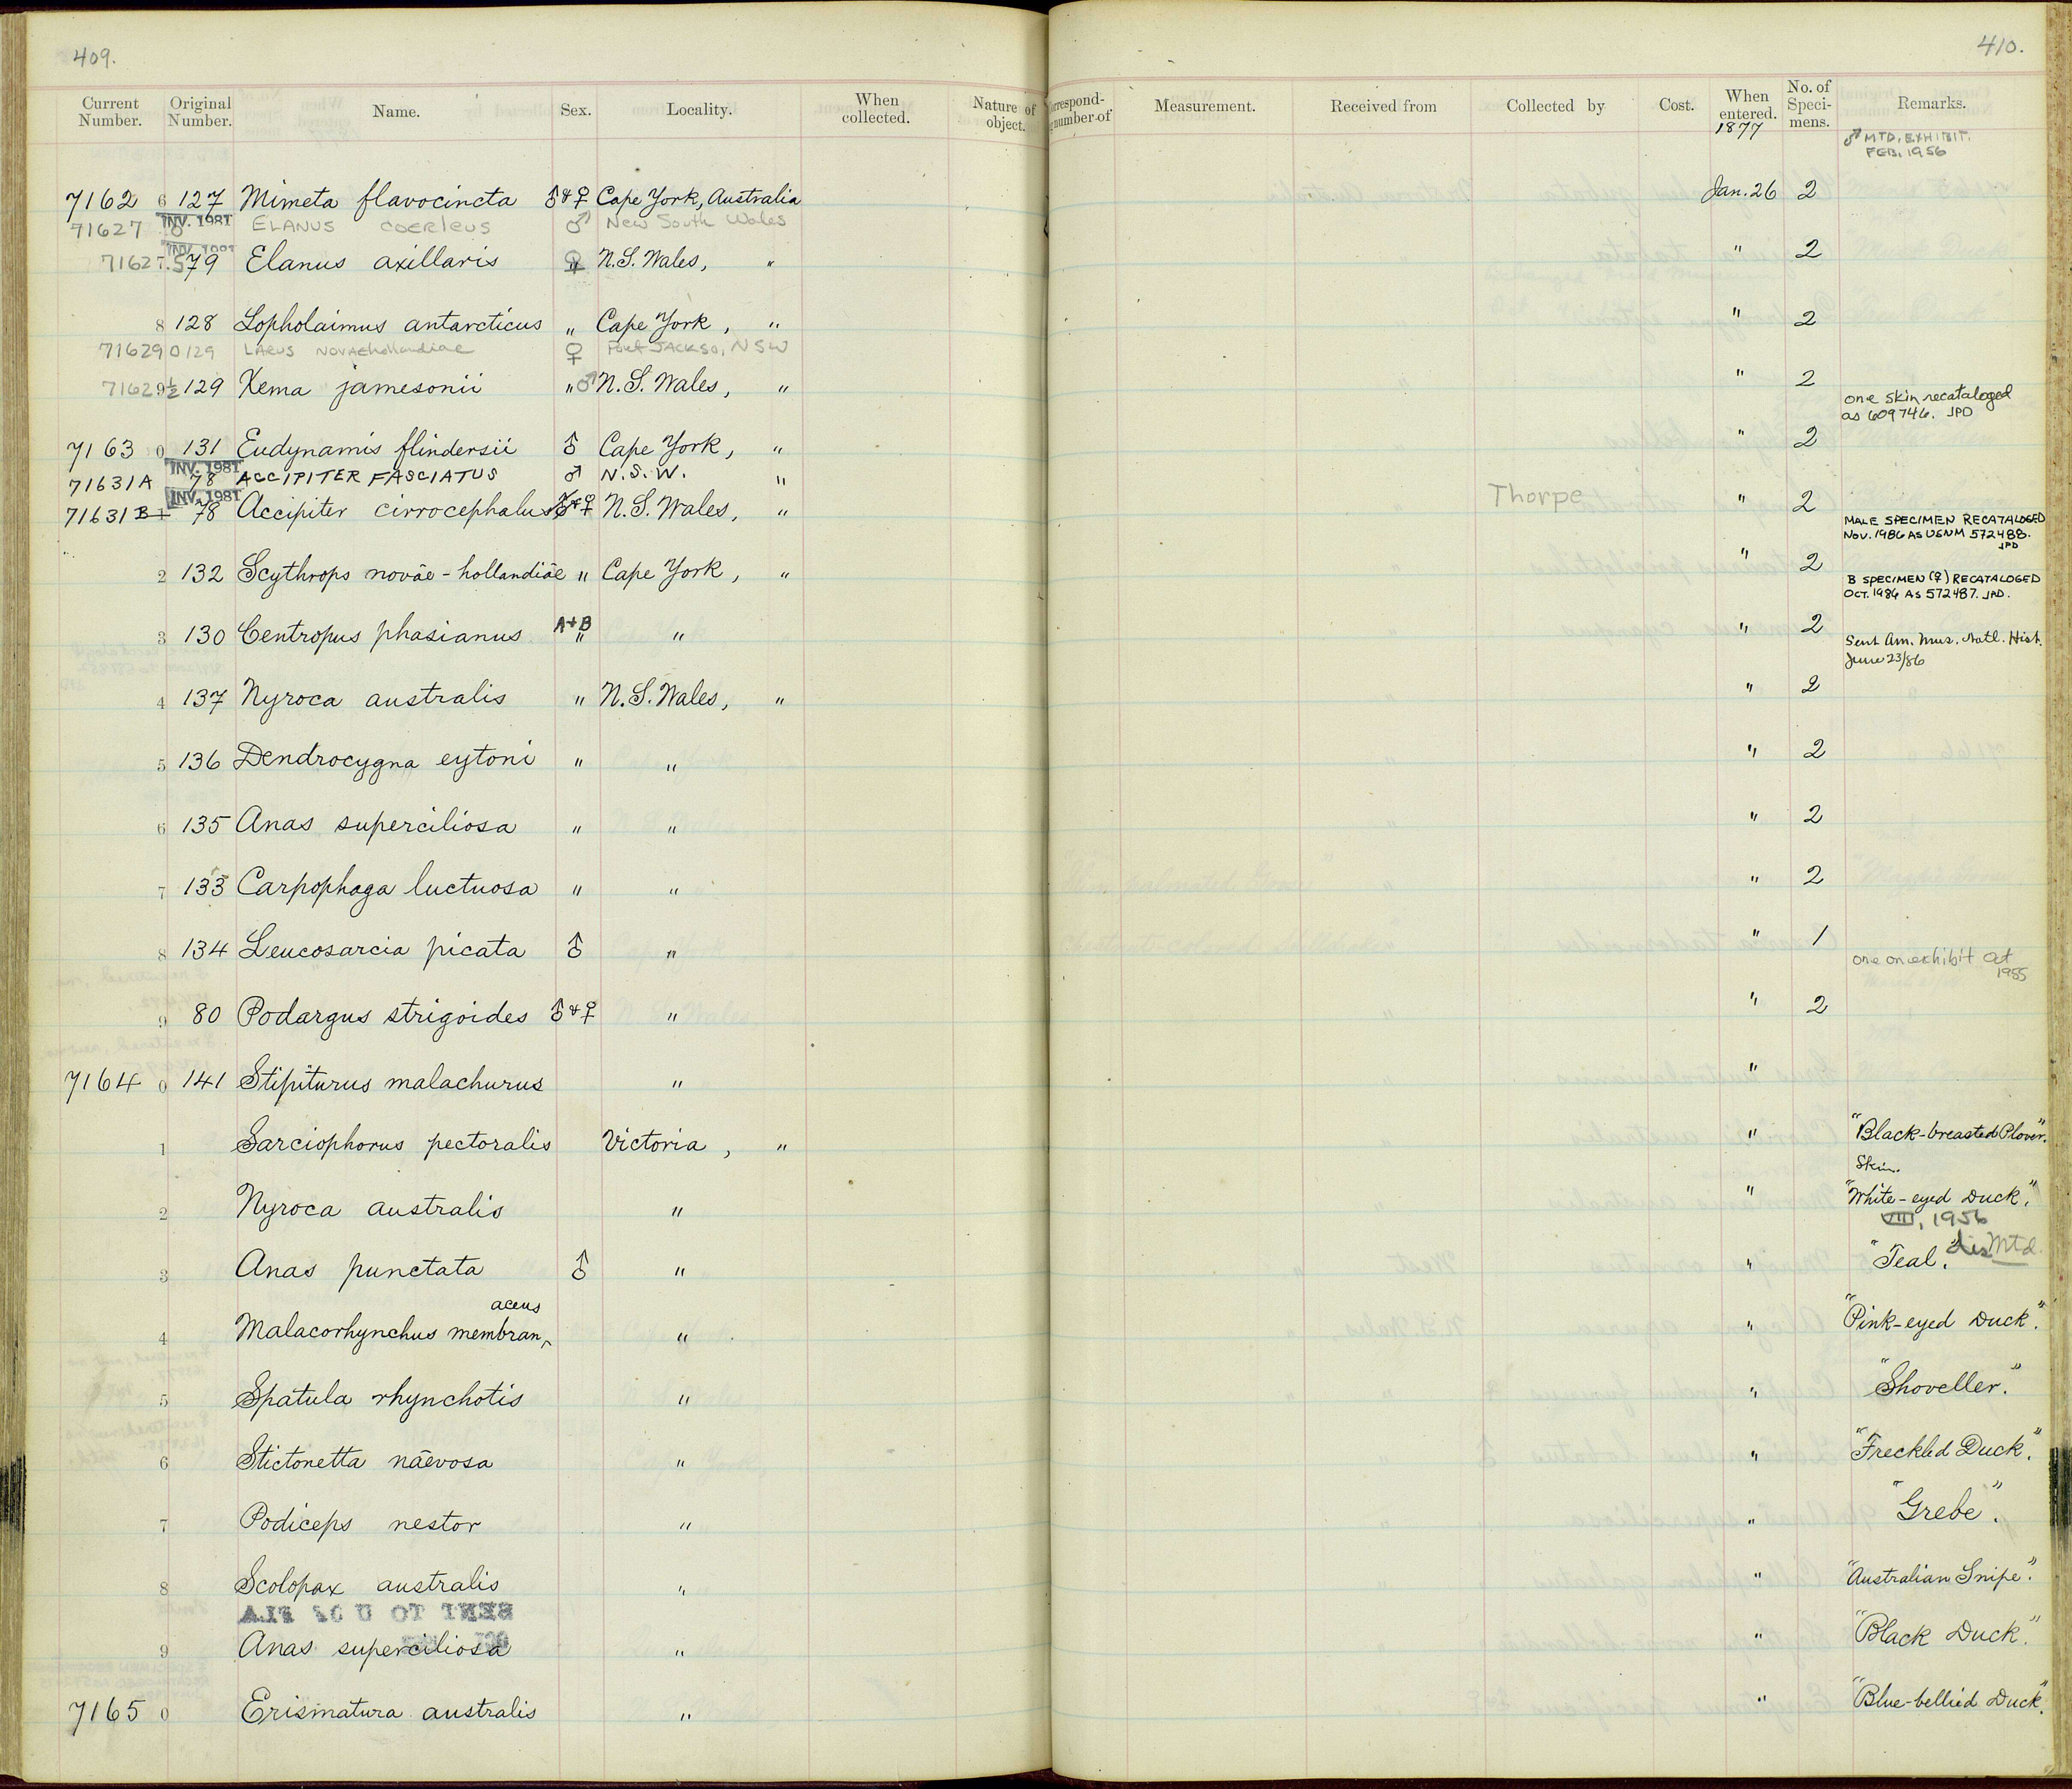 409.
410.
Current Number. Original Number. Name. Sex. Locality. When collected. Nature of object. Correspond- number of Measurement. Received from Collected by Cost. When entered. No. of Speci- mens. Remarks.
1877
♂ MTD. EXHIBIT.
FEB. 1956
7162 6 127 Mimeta flavocincta ♂ & ♀ Cape York, Australia Jan. 26 2
INV. 1981
71627 0 ELANUS COERLEUS ♂ New South Wales
INV. 1981
7162 7. 579 Elanus axillaris ♀ N.S. Wales, " " 2
8 128 Lopholaimus antarcticus " Cape York, " " 2
71629 0129 LARUS NOVAEhollandiae ♀ Port JACKSO, NSW
7162 9½ 129 Xema jamesonii " ♂ N.S. Wales, " " 2
one skin recataloged
as 609746. JPD
7163 0 131 Eudynamis flindersii ♂ Cape York, " " 2
INV. 1981
71631A 78 ACCIPITER FASCIATUS ♂ N.S.W. "
INV. 1981
71631 B 1 78 Accipiter cirrocephalus ♂ & ♀ N.S. Wales, " Thorpe " 2
MALE SPECIMEN RECATALOGED
NOV. 1986 AS USNM 572488.
JPD
2 132 Scythrops novae-hollandiae " Cape York, " " 2
B SPECIMEN (♀) RECATALOGED
OCT. 1986 AS 572487. JPD.
3 130 Centropus phasianus A+B " " " 2
Sent Am. Mus. Natl. Hist.
June 23/86
4 137 Nyroca australis " N.S. Wales, " " 2
5 136 Dendrocygna eytoni " " " 2
6 135 Anas superciliosa " " " 2
7 133 Carpophaga luctuosa " " " 2
8 134 Leucosarcia picata ♂ " " 1
one on exhibit at
1985
9 80 Podargus strigoides ♂ & ♀ " " 2
7164 0 141 Stipiturus malachurus " "
1 Sarciophorus pectoralis Victoria, " " "Black-breasted Plover."
Skin.
2 Nyroca australis " " "White-eyed Duck."
VIII, 1956
3 Anas punctata ♂ " " "Teal." Mtd.
aceus
4 Malacorhynchus membran^ " " "Pink-eyed Duck".
5 Spatula rhynchotis " " "Shoveller."
6 Stictonetta naevosa " " "Freckled Duck."
7 Podiceps nestor " " "Grebe".
8 Scolopax australis " " "Australian Snipe".
9 Anas superciliosa " " "Black Duck."
7165 0 Erismatura australis " " "Blue-bellied Duck."